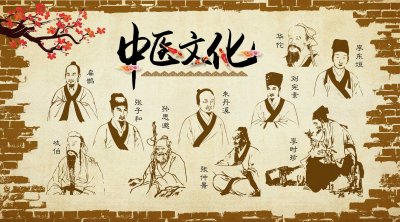 中医文化
扁鹊
张子和
孙思邈
朱丹溪
刘完素
华佗
李东垣
岐伯
张仲景
李时珍